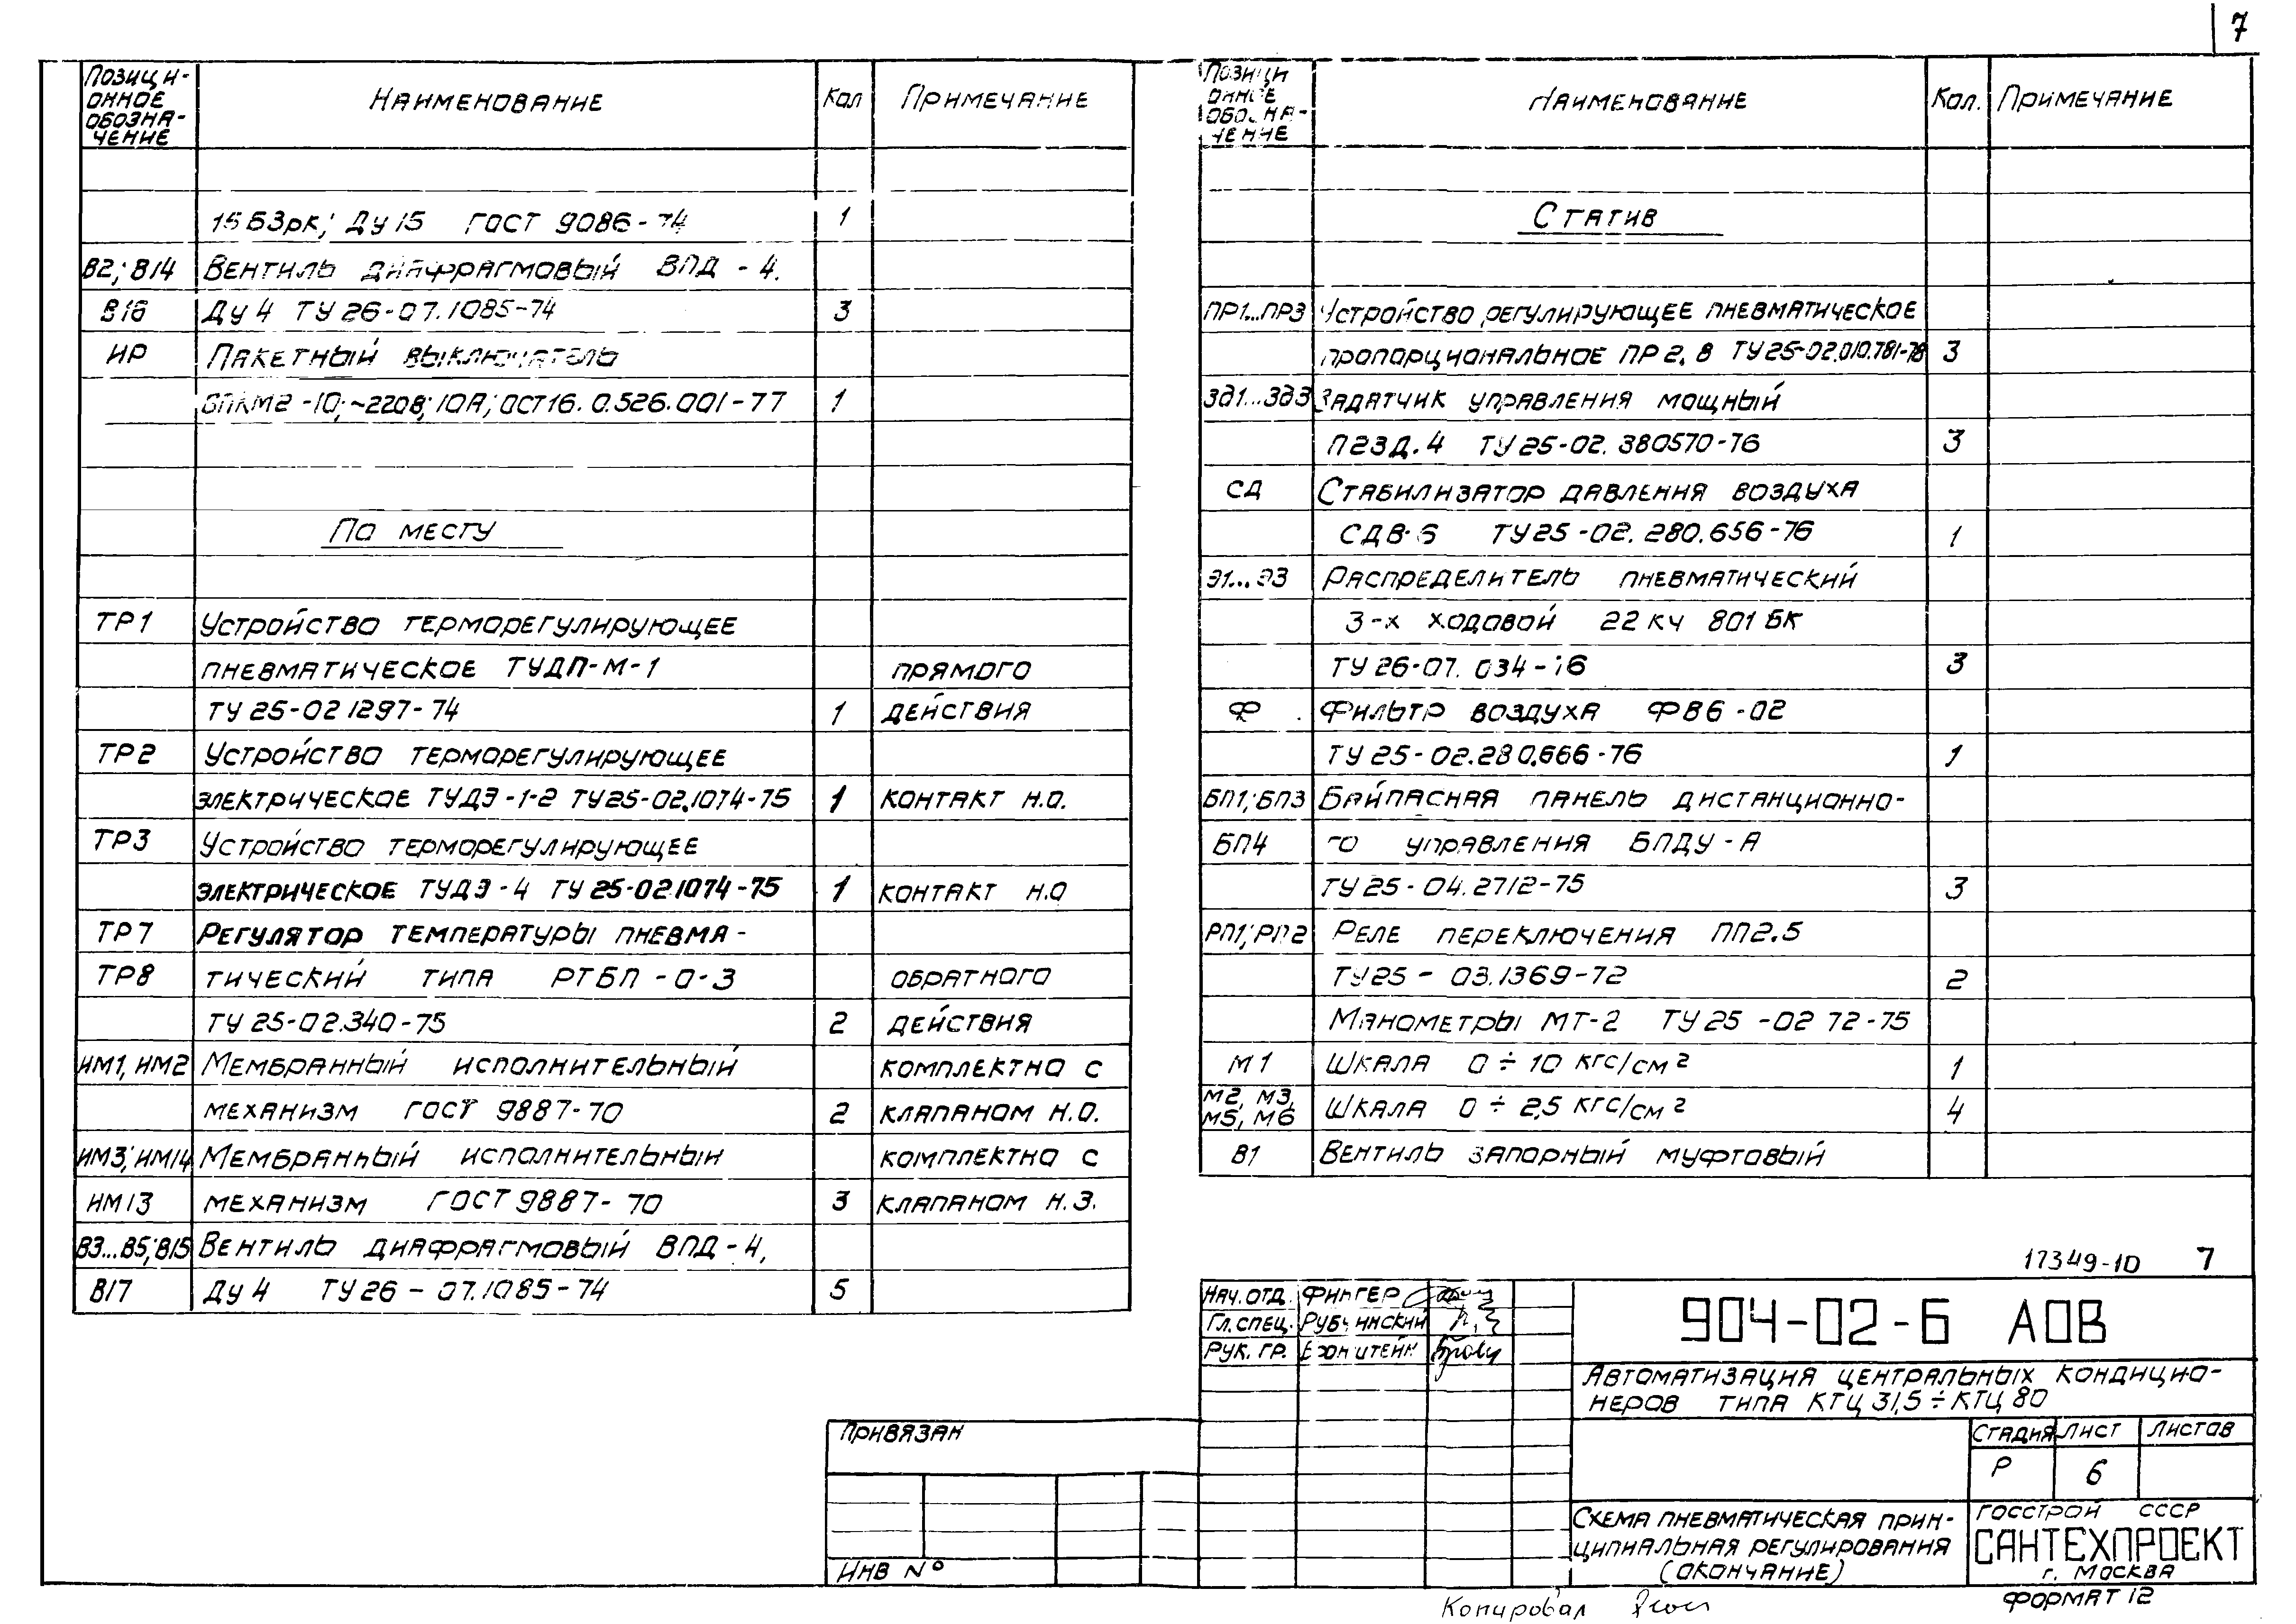 7
Позици-
онное
обозна-
чение
Наименование
Кол
Примечание
15Б3рк; Ду15 ГОСТ 9086-74 1
В2; В14 Вентиль диафрагмовый ВПД-4.
В16 Ду4 ТУ26-07.1085-74 3
ИР Пакетный выключатель
ВПКМ2-10; ~220В; 10А; ОСТ16.0.526.001-77 1
По месту
ТР1 Устройство терморегулирующее
пневматическое ТУДП-М-1 прямого
ТУ25-02 1297-74 1 действия
ТР2 Устройство терморегулирующее
электрическое ТУДЭ-1-2 ТУ25-02.1074-75 1 контакт Н.О.
ТР3 Устройство терморегулирующее
электрическое ТУДЭ-4 ТУ25-02.1074-75 1 контакт Н.О
ТР7 Регулятор температуры пневма-
ТР8 тический типа РТБП-0-3 обратного
ТУ25-02.340-75 2 действия
ИМ1, ИМ2 Мембранный исполнительный комплектно с
механизм ГОСТ 9887-70 2 клапаном Н.О.
ИМ3; ИМ14 Мембранный исполнительный комплектно с
ИМ13 механизм ГОСТ 9887-70 3 клапаном Н.З.
В3...В5; В15 Вентиль диафрагмовый ВПД-4,
В17 Ду4 ТУ26-07.1085-74 5
Позици
онное
обозна-
чение
Наименование
Кол.
Примечание
Статив
ПР1...ПР3 Устройство регулирующее пневматическое
пропорциональное ПР2.8 ТУ25-02.010.781-78 3
Зд1...Зд3 Задатчик управления мощный
П23Д.4 ТУ25-02.380570-76 3
СД Стабилизатор давления воздуха
СДВ-6 ТУ25-02.280.656-76 1
Э1...Э3 Распределитель пневматический
3-х ходовой 22кч 801БК
ТУ26-07.034-76 3
Ф Фильтр воздуха ФВ6-02
ТУ25-02.280.666-76 1
БП1; БП3 Байпасная панель дистанционно-
БП4 го управления БПДУ-А
ТУ25-04.2712-75 3
РП1; РП2 Реле переключения ПП2.5
ТУ25-03.1369-72 2
Манометры МТ-2 ТУ25-02 72-75
М1 Шкала 0÷10 кгс/см² 1
М2, М3,
М5, М6 Шкала 0÷2,5 кгс/см² 4
В1 Вентиль запорный муфтовый
17349-10 7
Нач. отд. Фингер
Гл. спец. Рубчинский
Рук. гр. Бронштейн
904-02-6 АОВ
Автоматизация центральных кондицио-
неров типа КТЦ 31,5÷КТЦ 80
Стадия Лист Листов
Р 6
Схема пневматическая прин-
ципиальная регулирования
(окончание)
Госстрой СССР
САНТЕХПРОЕКТ
г. Москва
Привязан
Инв №
Копировал
Формат 12